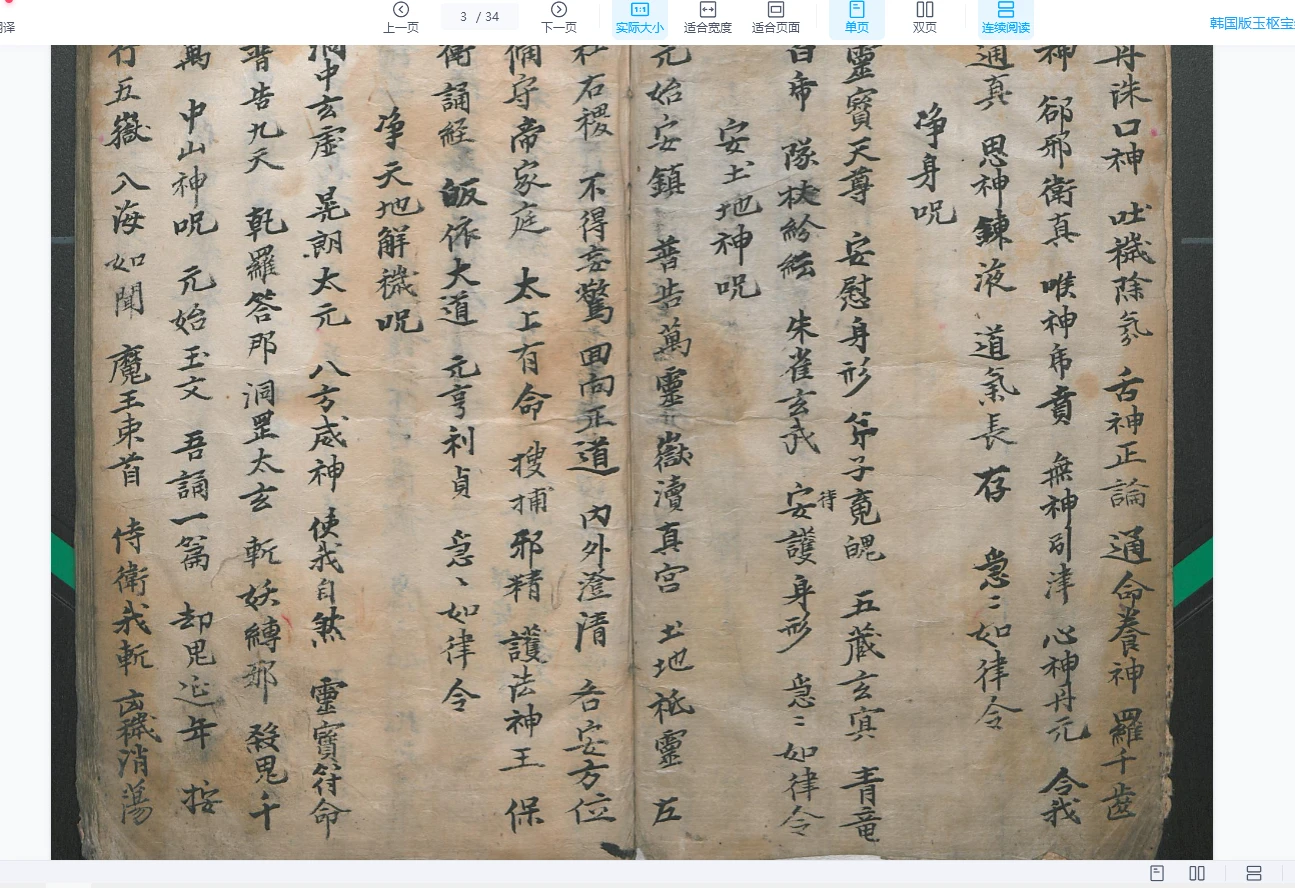 译
上一页
3 / 34
下一页
实际大小
适合宽度
适合页面
单页
双页
连续阅读
韩国版玉枢宝
丹洙口神 吐穢除氛 舌神正論 通命養神 羅千齒
神 郤邪衛真 喉神帍賁 無神引津 心神丹元 令我
通真 思神鍊液 道氣長存 急〻如律令
净身呪
靈寶天尊 安慰身形 弟子䰟魄 五藏玄㝠 青竜
白帝 隊杖紛紜 朱雀玄武 安待護身形 急〻如律令
安土地神呪
元始安鎮 普告萬靈 嶽瀆真宮 土地祇靈 左
社右稷 不得妄驚 回向正道 內外澄清 各安方位
備守帝家庭 太上有命 搜捕邪精 護法神王 保
衛誦経 皈依大道 元亨利貞 急〻如律令
净天地解穢呪
洞中玄虛 晃朗太元 八方威神 使我自然 靈寶符命
普告九天 乾羅答那 洞罡太玄 斬妖縛邪 殺鬼千
萬 中山神呪 元始玉文 吾誦一篇 却鬼延年 按
行五嶽 八海如聞 魔王束首 侍衛我斬 凶穢消蕩